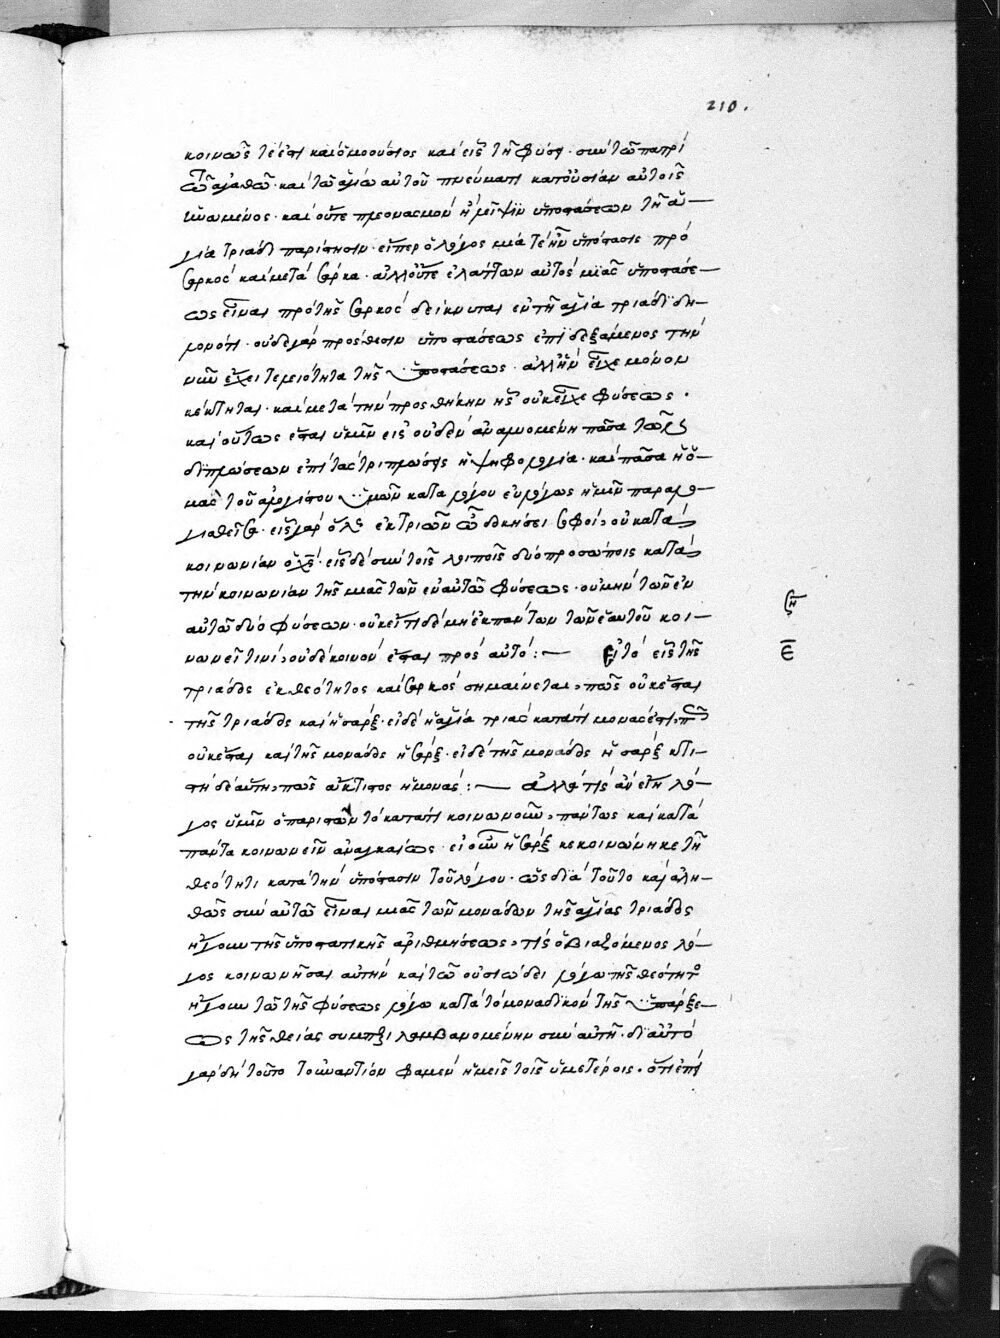 210.
κοινωνὸς τέ ἐστι καὶ ὁμοούσιος καὶ εἷς τῇ φύσει. σὺν τῷ πατρὶ
τῷ ἀγαθῷ. καὶ τῷ ἁγίῳ αὐτοῦ πνεύματι κατ' οὐσίαν αὐτοῖς
ἡνωμένος. καὶ οὔτε πλεονασμὸν ἢ μείωσιν ὑποστάσεων τῇ ἁ-
γίᾳ τριάδι παρίστησιν. εἴπερ ὁ λόγος μία τέ ἦν ὑπόστασις πρὸ
σαρκὸς καὶ μετὰ σάρκα. ἀλλ' οὔτε ἐλάττων αὐτὸς μιᾶς ὑποστάσε-
ως εἶναι πρὸ τῆς σαρκὸς δείκνυται ἐν τῇ ἁγίᾳ τριάδι δη-
μονότι. οὐδὲ γὰρ πρόσθεσιν ὑποστάσεως ἐπιδεξάμενος τὴν
νῦν ἔχει τελειότητα τῆς ὑποστάσεως. ἀλλ' ἣν εἶχε μόνον
κέκτηται. καὶ μετὰ τὴν προσθήκην ἧς οὐκ εἶχε φύσεως.
καὶ οὕτως ἔσται ὑμῖν εἰς οὐδὲν ἀναλυομένη πᾶσα τῶν
διπλώσεων ἐπὶ τὰς τριπλώσεις ἡ ψηφολογία. καὶ πᾶσα ἡ ὁ-
μὰς τοῦ ἀλογίστου ὑμῶν κατὰ λόγου εὐλόγως ἡμῖν παραλο-
γισθεῖσα. εἷς γὰρ ὅλος ἐκ τριῶν ὦ δοκήσει σοφοὶ, οὐ κατὰ
κοινωνίαν ὁ χς. εἷς δὲ σὺν τοῖς λοιποῖς δυὸ προσώποις κατὰ
τὴν κοινωνίαν τῆς μιᾶς τῶν ἐν αὐτῷ φύσεως. οὐ μὴν τῶν ἐν
αὐτῷ δυὸ φύσεων. οὐκ εἴ τι δὲ μὴ ἐκ πάντων τῶν ἑαυτοῦ κοι-
νωνεῖ τινὶ, οὐδὲ κοινὸν ἔσται πρὸς αὐτό :— Εἰ τὸ εἷς τῆς
τριάδος ἐκ θεότητος καὶ σαρκὸς σημαίνεται, πῶς οὐκ ἔσται
τῆς τριάδος καὶ ἡ σάρξ. εἰ δὲ ἡ ἁγία τριὰς κατά τι μονάς ἐστι, πῶς
οὐκ ἔσται καὶ τῆς μονάδος ἡ σάρξ. εἰ δὲ τῆς μονάδος ἡ σάρξ κτι-
στὴ δὲ αὕτη, πῶς ἄκτιστος ἡ μονάς :— ἀλλὰ τίς ἂν εἴη λό-
γος ὑμῖν ὁ παριστῶν τὸ κατά τι κοινωνοῦν, πάντως καὶ κατὰ
πάντα κοινωνεῖν ἀναγκαίως. εἰ οὖν ἡ σάρξ κεκοινώνηκε τῇ
θεότητι κατὰ τὴν ὑπόστασιν τοῦ λόγου. ὡς διὰ τοῦτο καὶ ἀλη-
θῶς σὺν αὐτῷ εἶναι μιᾶς τῶν μονάδων τῆς ἁγίας τριάδος
ἤγουν τῆς ὑποστατικῆς ἀριθμήσεως, τίς ὁ βιαζόμενος λό-
γος κοινωνῆσαι αὐτὴν καὶ τῷ οὐσιώδει λόγῳ τῆς θεότητος
ἤγουν τῷ τῆς φύσεως λόγῳ κατὰ τὸ μοναδικὸν τῆς ὑπάρξε-
ως τῆς θείας συμπεριλαμβανομένην σὺν αὐτῇ. δι' αὐτὸ
γὰρ δὴ τοῦτο τοὐναντίον φαμὲν ἡμεῖς τοῖς ὑμετέροις. ὅτι ἐπὶ
ση
ε